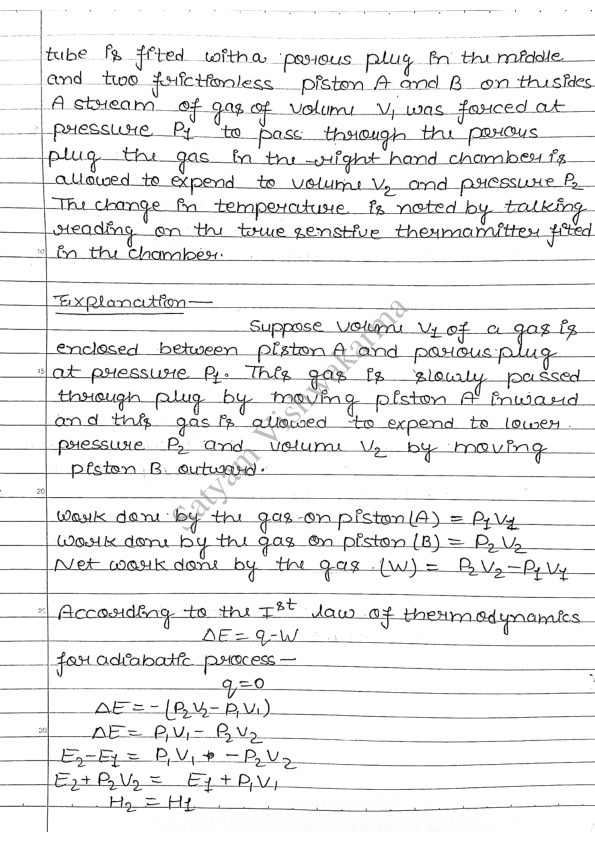 tube is fited with a porous plug in the middle
and two frictionless piston A and B on the sides
A stream of gas of volume V₁ was forced at
pressure P1 to pass through the porous
plug the gas in the right hand chamber is
allowed to expend to volume V₂ and pressure P₂
The change in temperature is noted by talking
reading on the true senstive thermamitter fited
in the chamber.
Explanation—
Suppose volume V1 of a gas is
enclosed between piston A and porous plug
at pressure P1. This gas is slowly passed
through plug by moving piston A inward
and this gas is allowed to expend to lower
pressure P₂ and volume V₂ by moving
piston B outward.
work done by the gas on piston (A) = P1V1
work done by the gas on piston (B) = P₂V₂
Net work done by the gas (W) = P₂V₂-P1V1
According to the Iˢᵗ law of thermodynamics
ΔE = q-W
for adiabatic process—
q=0
ΔE = -(P₂V₂-P₁V₁)
ΔE = P₁V₁-P₂V₂
E₂-E1 = P₁V₁ -P₂V₂
E₂+P₂V₂ = E1+P₁V₁
H₂ = H1
Satyam Vishwakarma
10
15
20
25
30